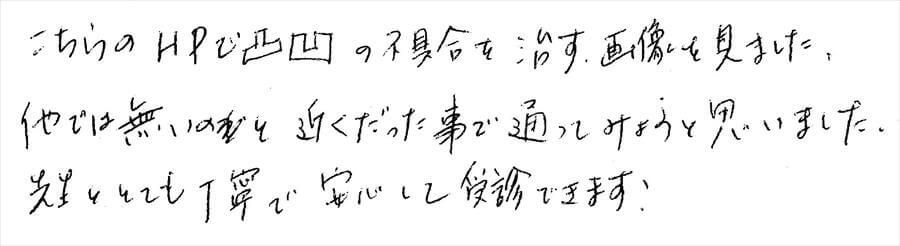 こちらのHPで凸凹の不具合を治す、画像を見ました、
他では無いのと近くだった事で通ってみようと思いました、
先生とても丁寧で安心して受診できます!